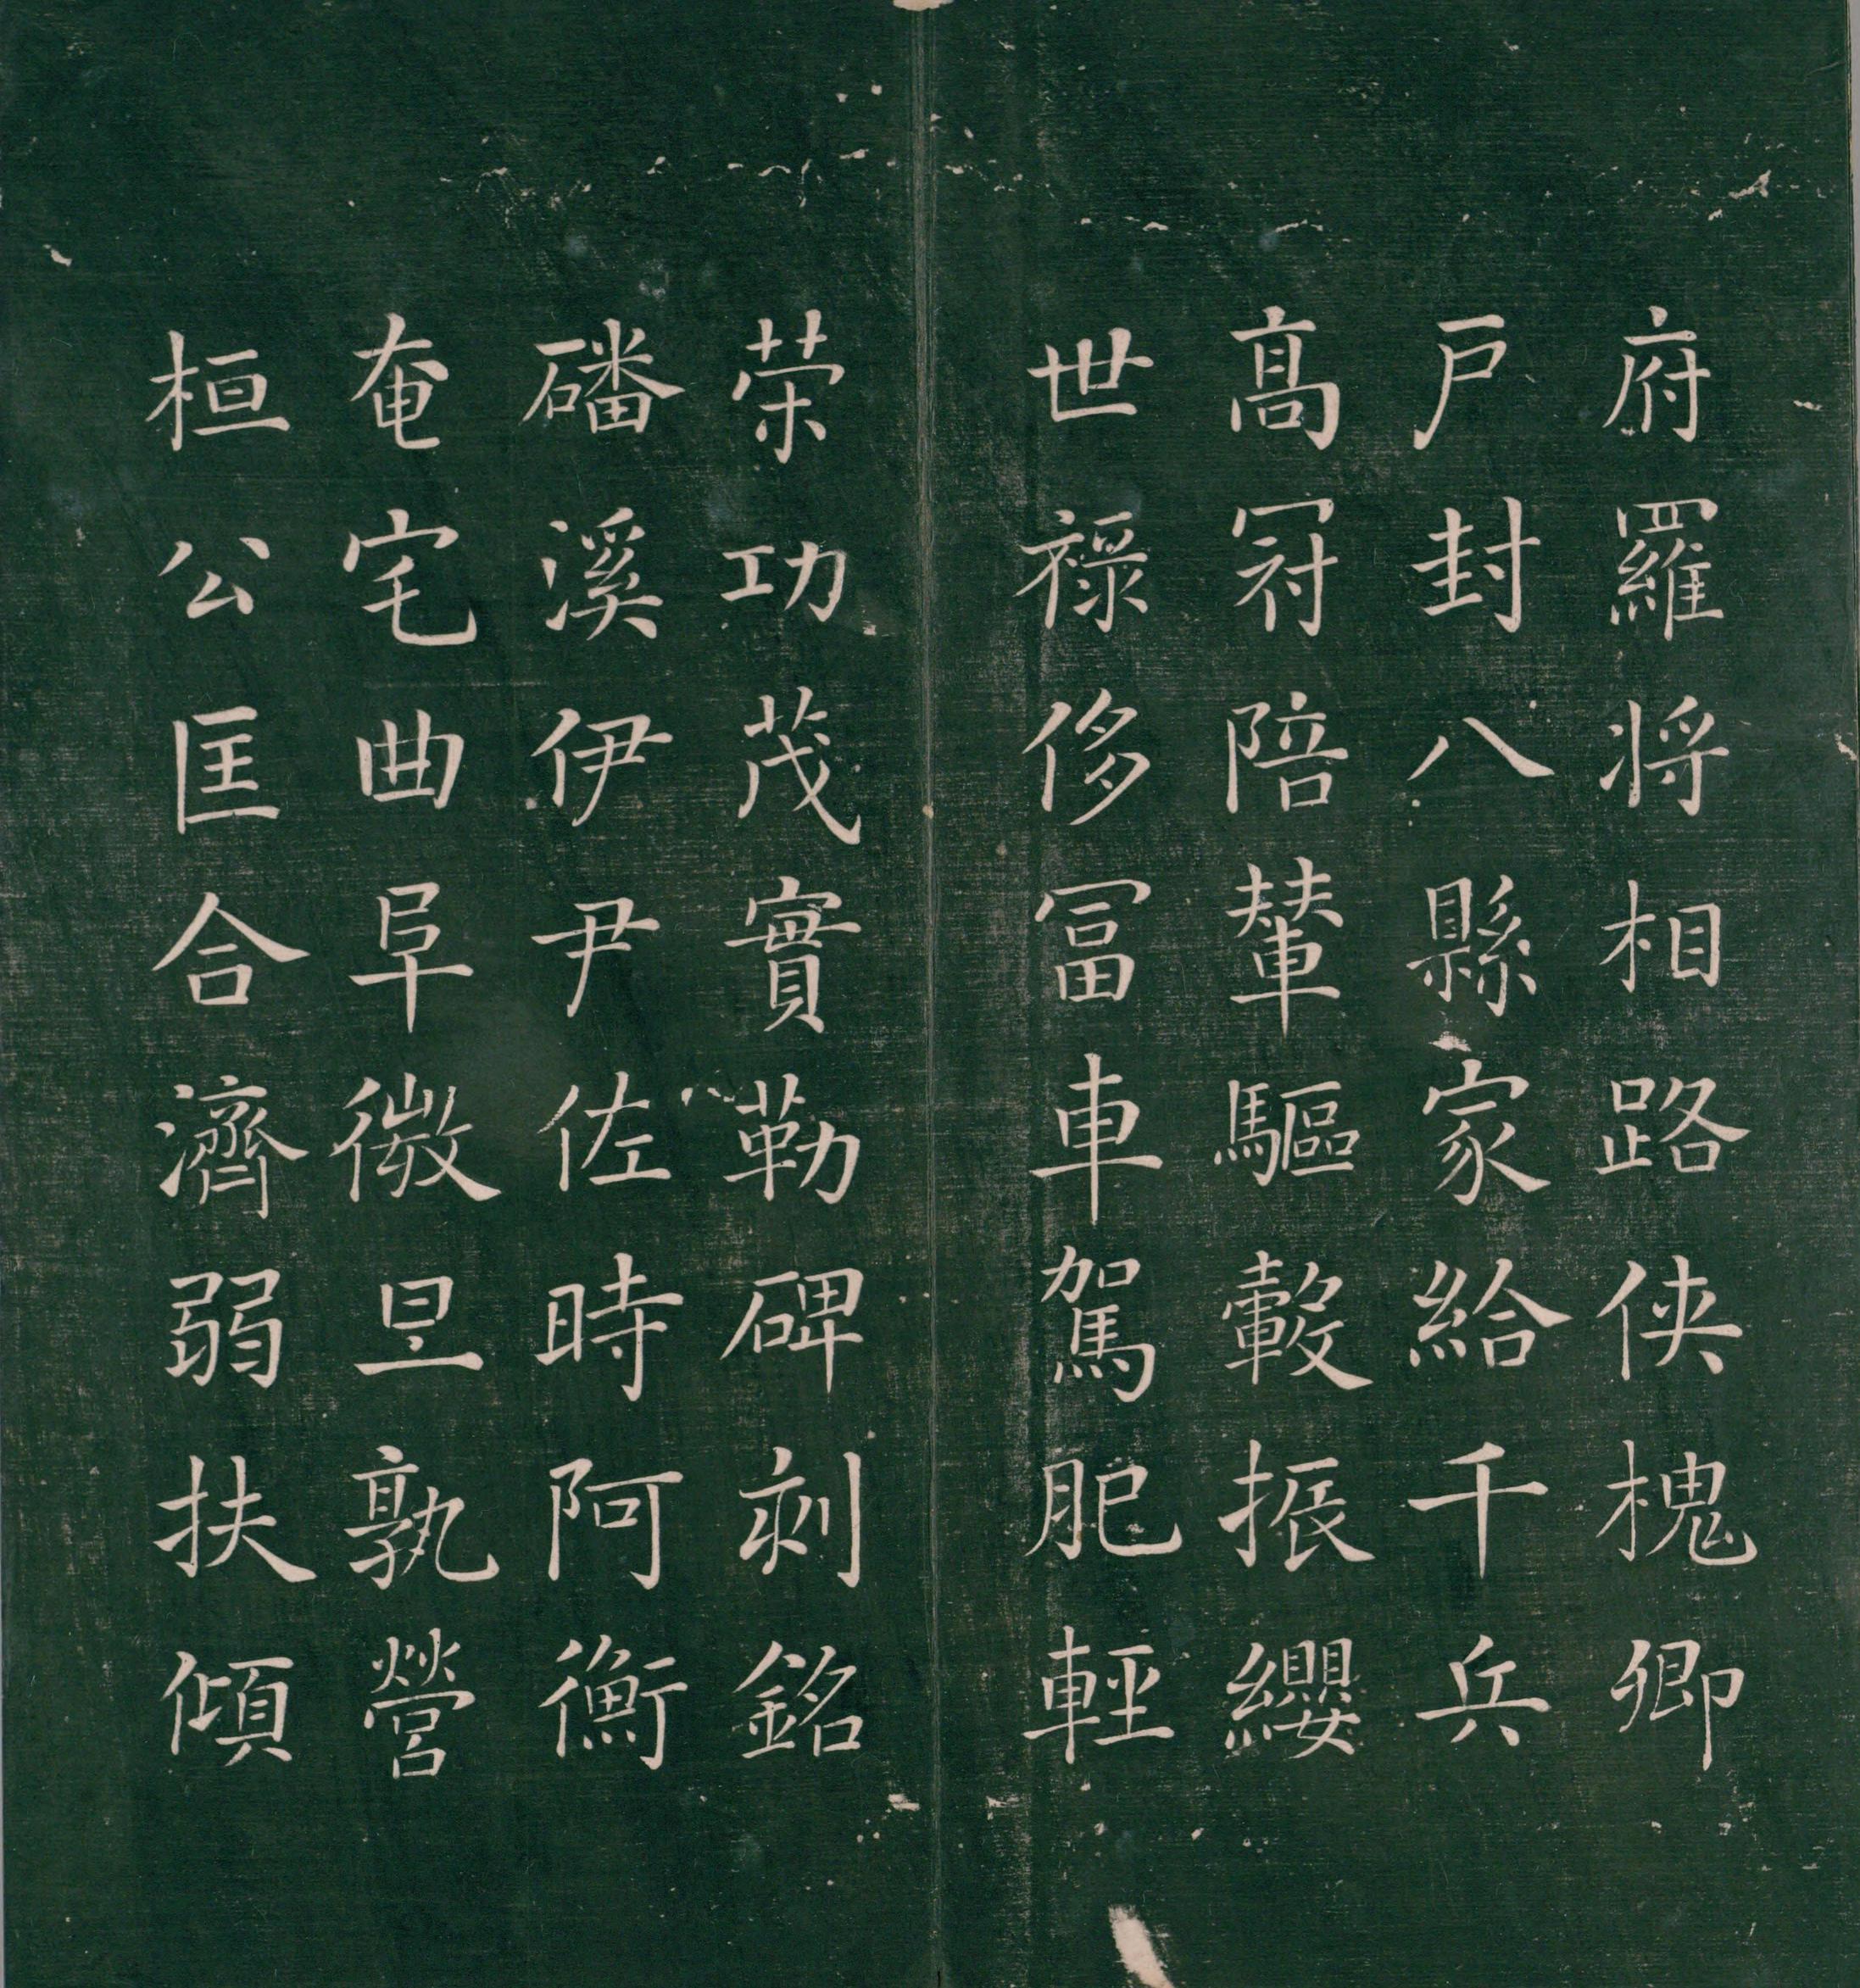 府羅将相路侠槐卿
戸封八縣家給千兵
髙冠陪輦驅轂振纓
世禄侈冨車駕肥輕
荣功茂實勒碑刻銘
磻溪伊尹佐時阿衡
奄宅曲阜微旦孰營
桓公匡合濟弱扶傾